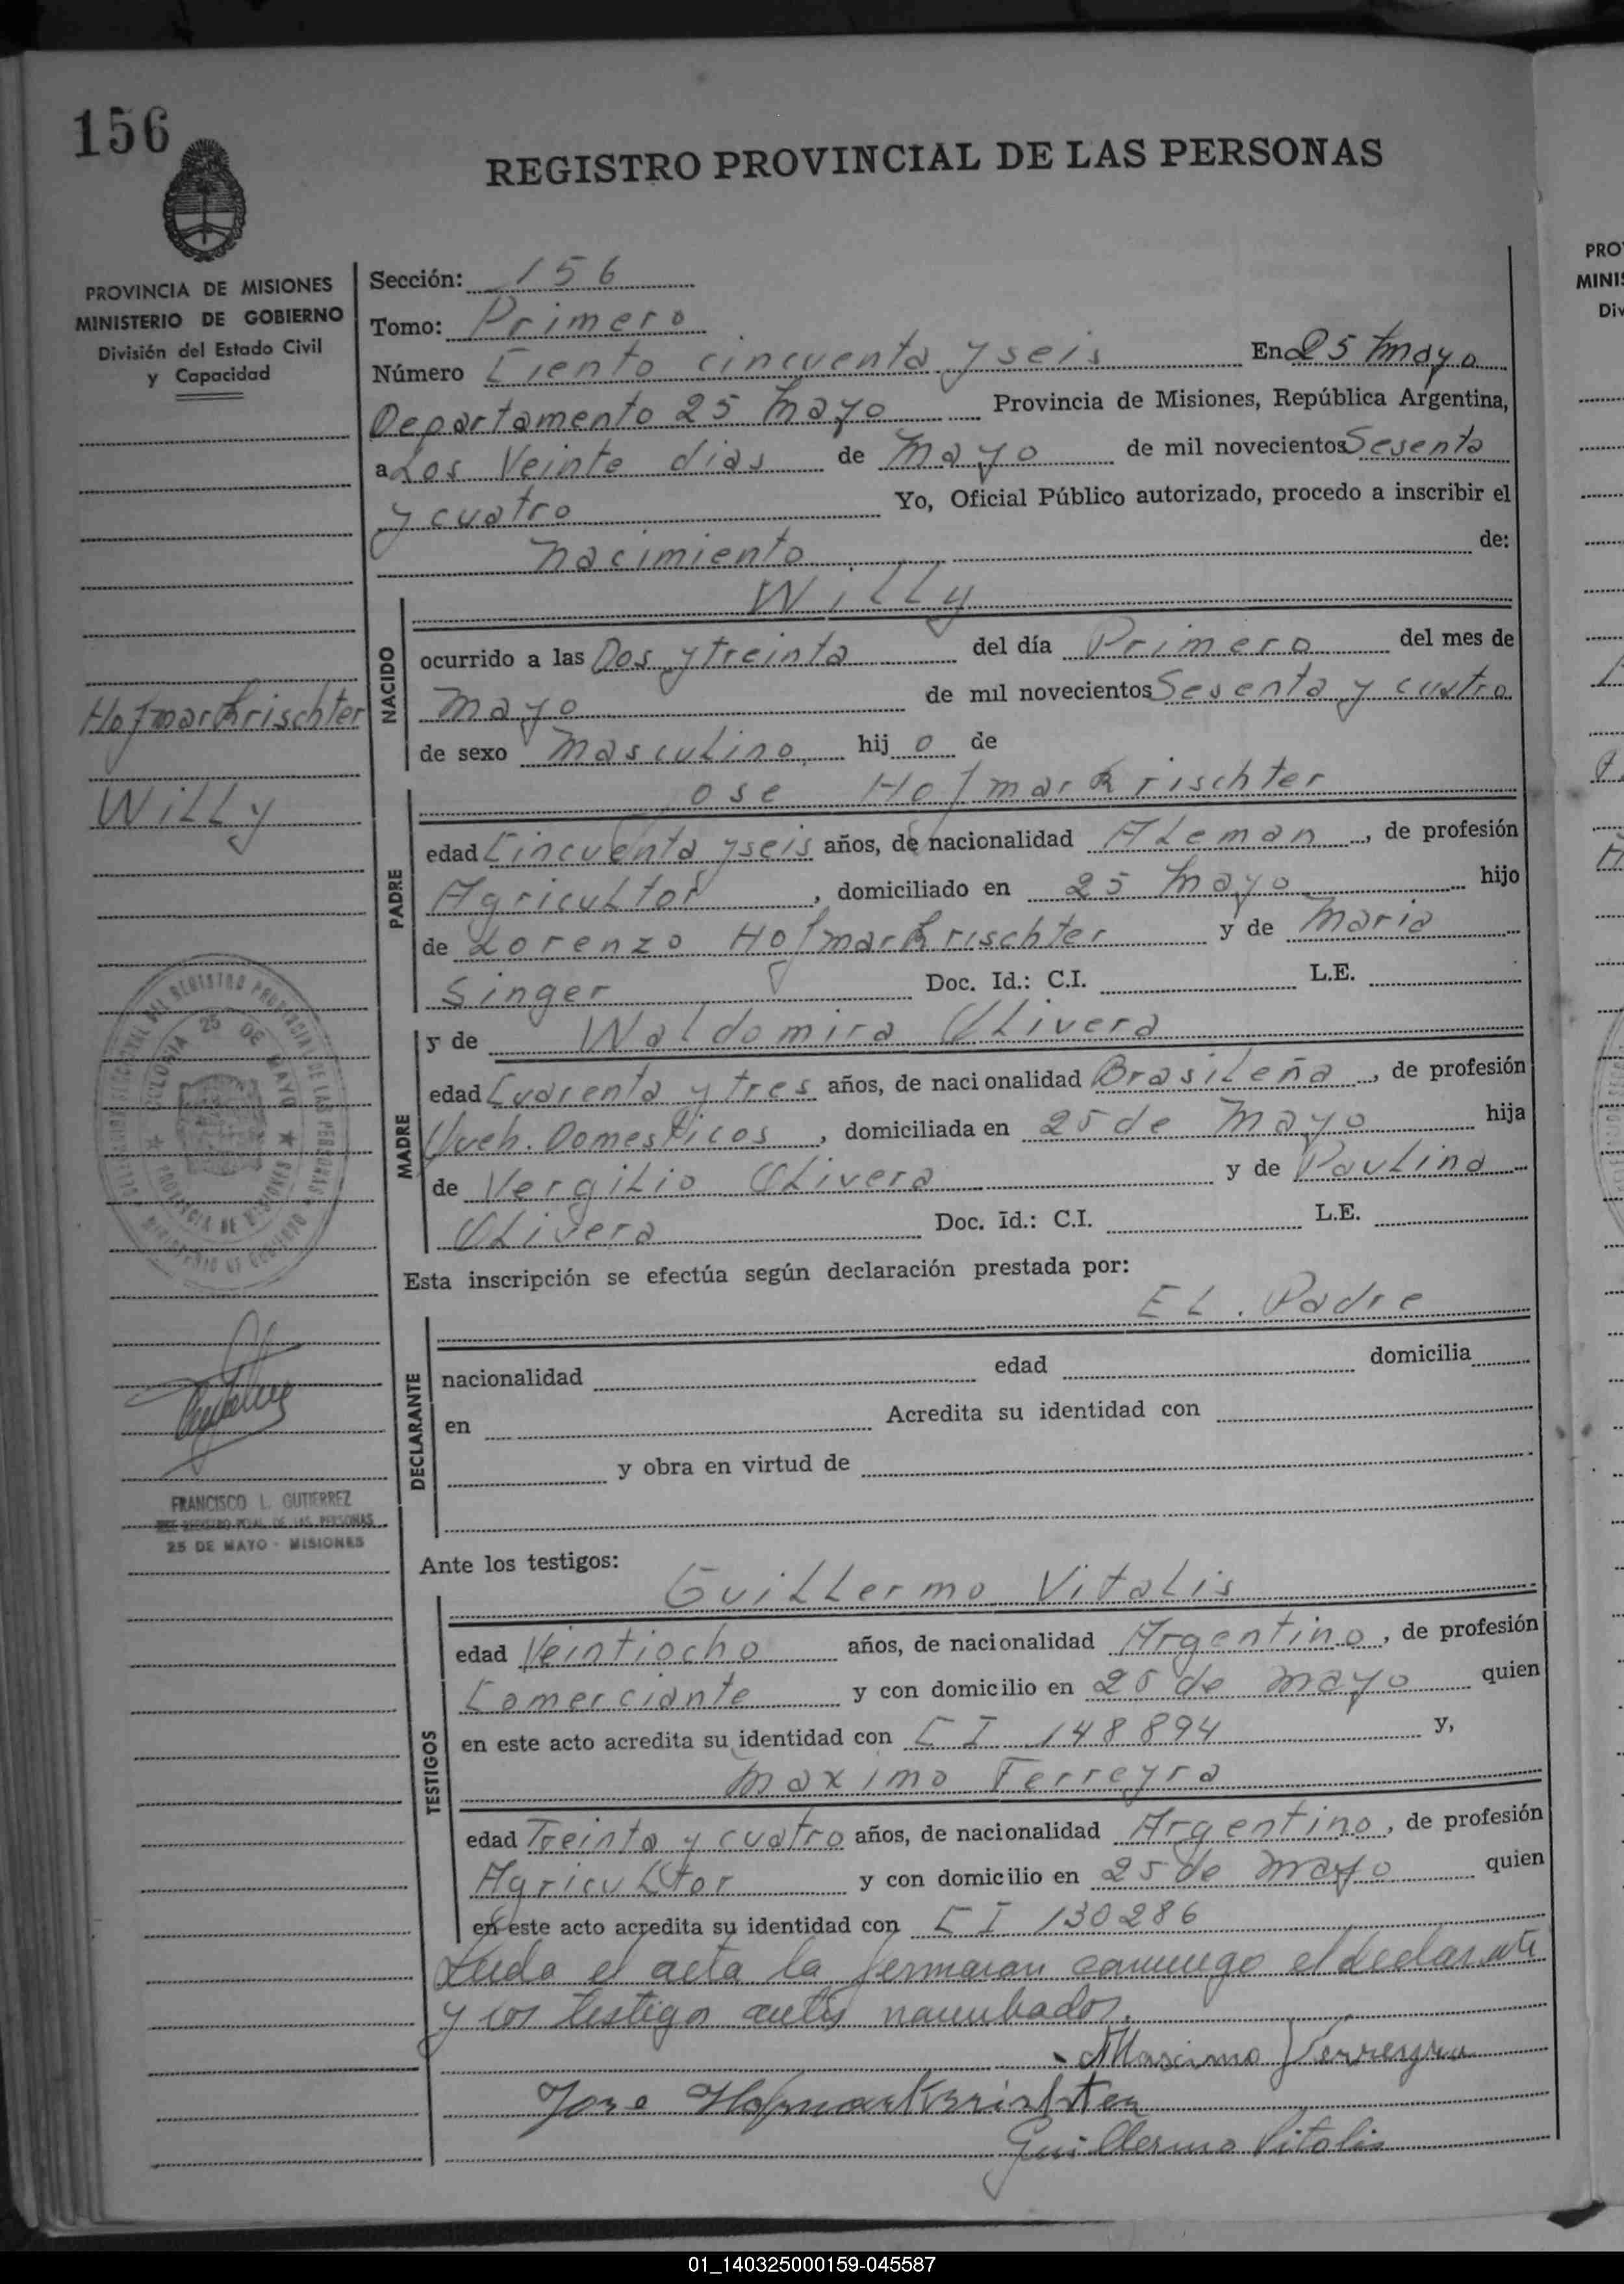 156
REGISTRO PROVINCIAL DE LAS PERSONAS
PROVINCIA DE MISIONES
MINISTERIO DE GOBIERNO
División del Estado Civil
y Capacidad
Sección: 156
Tomo: Primero
Número Ciento cincuenta y seis En 25 mayo
Departamento 25 Mayo Provincia de Misiones, República Argentina,
a Los Veinte dias de Mayo de mil novecientos Sesenta
y cuatro Yo, Oficial Público autorizado, procedo a inscribir el
nacimiento de:
Willy
NACIDO
ocurrido a las Dos y treinta del día Primero del mes de
mayo de mil novecientos Sesenta y cuatro
de sexo Masculino hijo de
Hofmarkrischter
Willy
PADRE
ose Hofmarkrischter
edad Cincuenta y seis años, de nacionalidad Aleman, de profesión
Agricultor, domiciliado en 25 Mayo hijo
de Lorenzo Hofmarkrischter y de Maria
Singer Doc. Id.: C.I. L.E.
MADRE
y de Waldomira Olivera
edad Cuarenta y tres años, de nacionalidad Brasileña, de profesión
Queh. Domesticos, domiciliada en 25 de Mayo hija
de Vergilio Olivera y de Paulina
Olivera Doc. Id.: C.I. L.E.
COLONIA 25 DE MAYO
PROVINCIA DE MISIONES
Esta inscripción se efectúa según declaración prestada por:
El Padre
DECLARANTE
nacionalidad edad domicilia
en Acredita su identidad con
y obra en virtud de
FRANCISCO L. GUTIERREZ
25 DE MAYO - MISIONES
Ante los testigos:
TESTIGOS
Guillermo Vitalis
edad Veintiocho años, de nacionalidad Argentino, de profesión
Comerciante y con domicilio en 25 de mayo quien
en este acto acredita su identidad con CI 148894 y,
Maximo Ferreyra
edad Treinta y cuatro años, de nacionalidad Argentino, de profesión
Agricultor y con domicilio en 25 de mayo quien
en este acto acredita su identidad con CI 130286
Leida el acta la fermaran conmigo el declarante
y los testigo antes nombados.
Maximo Ferreyra
Jose Hofmarkrischter
Guillermo Vitalis
PRO
MINIS
Div
01_140325000159-045587